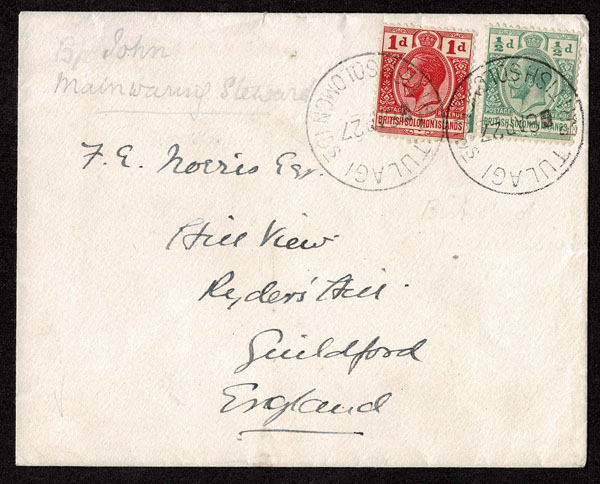 Bp John
Mainwaring Steward
1d 1d
POSTAGE REVENUE
BRITISH SOLOMON ISLANDS
½d ½d
POSTAGE
BRITISH SOLOMON ISLANDS
TULAGI SOLOMON IS
27
TULAGI
27
F. E. Norris Esq.
Hill View
Ryder's Hill
Guildford
England